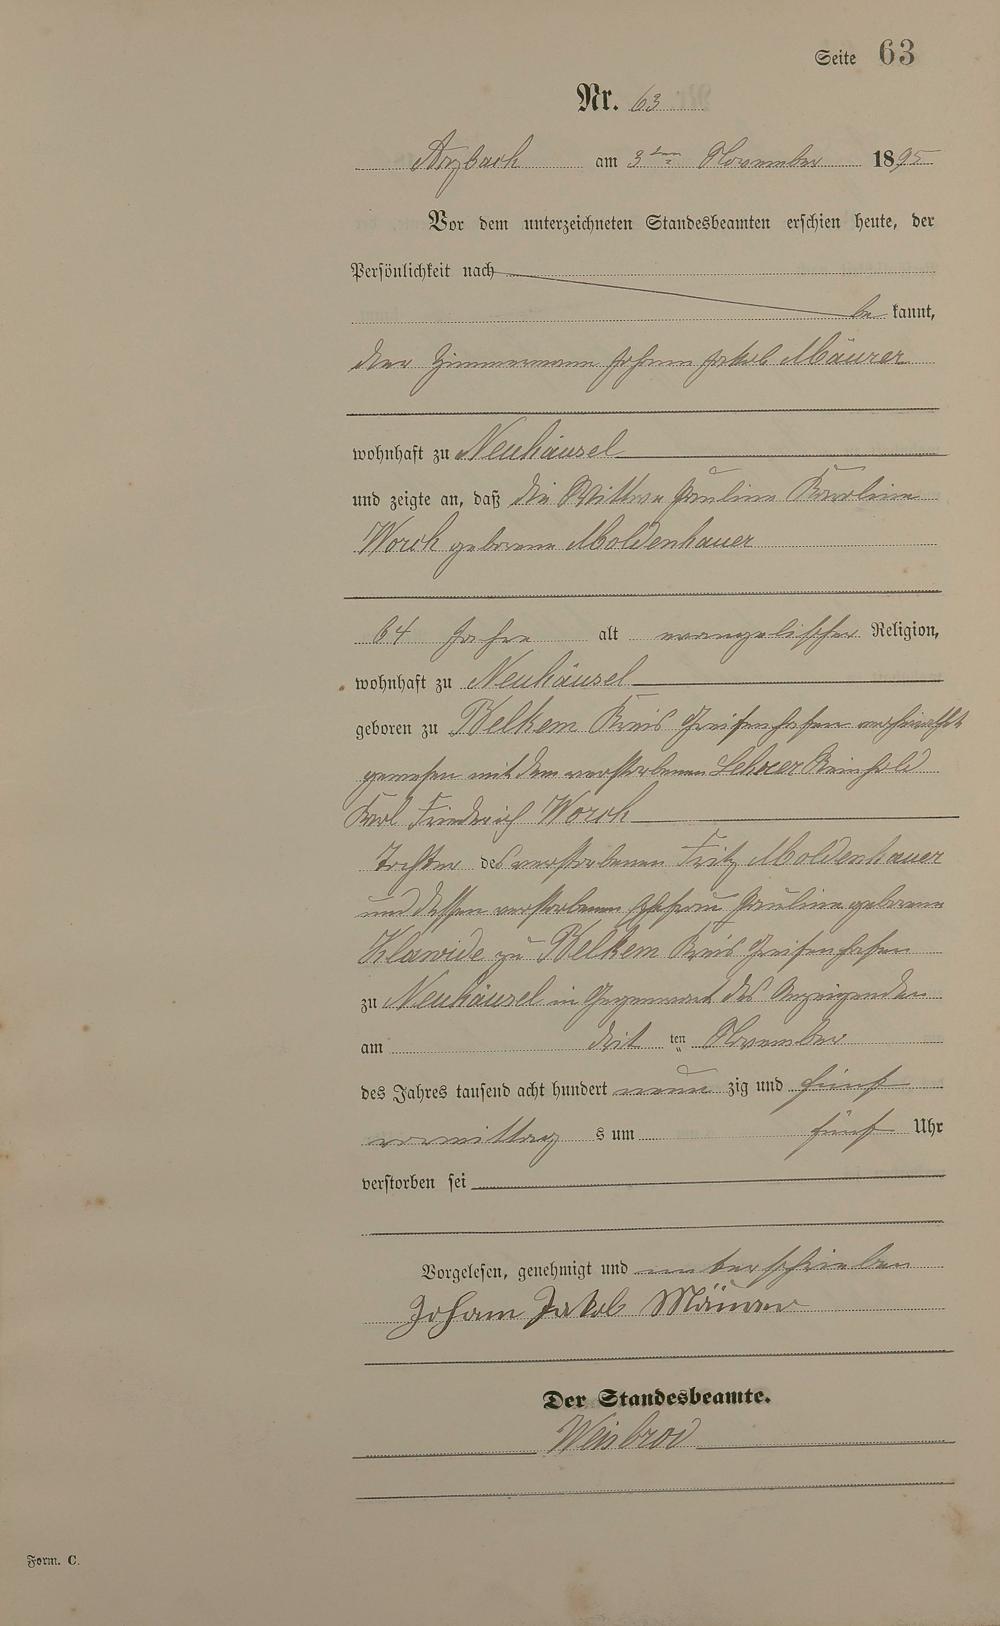 Seite 63
Nr. 63
Arzbach am 3ten November 1895
Vor dem unterzeichneten Standesbeamten erschien heute, der
Persönlichkeit nach
be kannt,
der Zimmermann Johann Jakob Mäurer
wohnhaft zu Neuhäusel
und zeigte an, daß die Wittwe Pauline Karoline
Worch geborene Moldenhauer
64 Jahre alt evangelischer Religion,
wohnhaft zu Neuhäusel
geboren zu Belkem Kreis Greifenhafen verheirathet
gewesen mit dem verstorbenen Lehrer Reinhold
Karl Friederich Worch
Tochter des verstorbenen Fritz Moldenhauer
und dessen verstorbenen Ehefrau Pauline geborene
Klawide zu Belkem Kreis Greifenhafen
zu Neuhäusel in Gegenwart des Anzeigenden
am drit ten November
des Jahres tausend acht hundert neun zig und fünf
vormittag s um fünf Uhr
verstorben sei
Vorgelesen, genehmigt und unterschrieben
Johann Jakob Mäurer
Der Standesbeamte.
Weisbrod
Form. C.